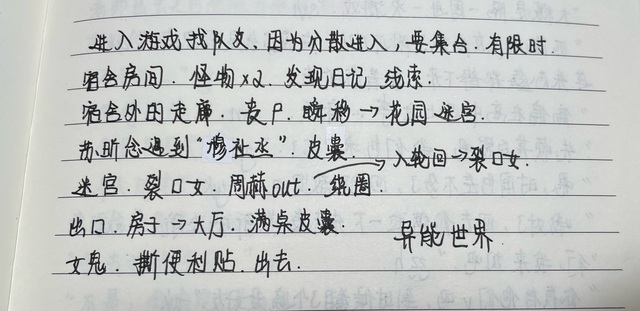 进入游戏找队友.因为分散进入,要集合.有限时.
宿舍房间.怪物x2.发现日记.线索.
宿舍外的走廊.丧尸.瞬移→花园迷宫.
苏昕念遇到“穆祉丞”.皮囊.
入轮回→裂口女.
迷宫.裂口女.周赫out.绕圈.
出口.房子→大厅.满桌皮囊.
异能世界.
女鬼.撕便利贴.出去.